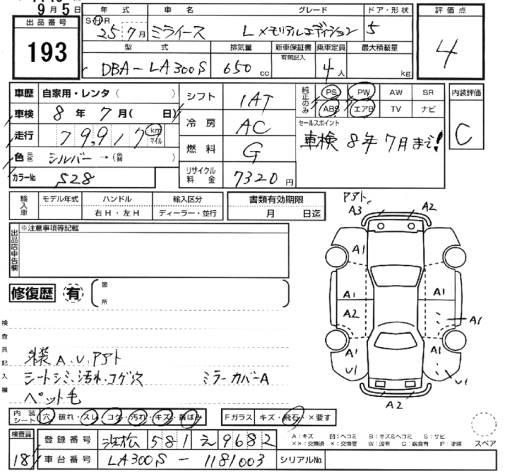 9月5日
年式
車名
グレード
ドア・形状
評価点
出品番号
193
S H
25年7月
ミライース
L メモリアルエディション
5
4
型式
排気量
新車保証書
有効記入
乗車定員
最大積載量
DBA-LA300S
650 cc
4人
kg
車歴
自家用・レンタ( )
シフト
1AT
純正のみ
PS
PW
AW
SR
内装評価
車検
8年7月( 日)
ABS
エアB
TV
ナビ
C
走行
79,917
km
マイル
冷房
AC
セールスポイント
車検8年7月まで!
色
シルバー→
燃料
G
カラーNo
S28
リサイクル料金
7320円
輸入車
モデル年式
ハンドル
輸入区分
書類有効期限
右H・左H
ディーラー・並行
月 日迄
アプト
A3
A2
出品店申告欄
※注意事項等記載
A1
A1
A1
A1
A2
A1
A1
U1
A2
修復歴
有
箇所
検査員記入欄
外装A.U.アプト
シートシミ、汚れ、コゲ穴
ミラーカバーA
ペット毛
内装
シート
穴・破れ・スレ・コゲ・汚れ・キズ・
Fガラス
キズ・飛石・×要す
検査員
18
登録番号
浜松581え9682
車台番号
LA300S-1181003
シリアルNo
スペア